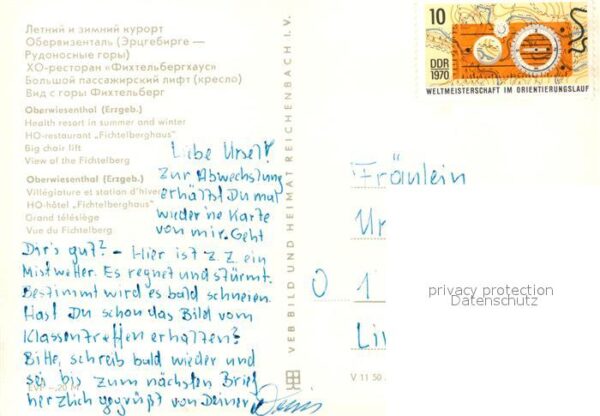 Летний и зимний курорт
Обервизенталь (Эрцгебирге —
Рудоносные горы)
ХО-ресторан «Фихтельбергхаус»
Большой пассажирский лифт (кресло)
Вид с горы Фихтельберг
Oberwiesenthal (Erzgeb.)
Health resort in summer and winter
HO-restaurant „Fichtelberghaus"
Big chair lift
View of the Fichtelberg
Oberwiesenthal (Erzgeb.)
Villégiature et station d'hiver
HO-hôtel „Fichtelberghaus"
Grand télésiège
Vue du Fichtelberg
Liebe Ursel!
Zur Abwechslung
erhältst Du mal
wieder 'ne Karte
von mir. Geht
Dir's gut? - Hier ist z. Z. ein
Mistwetter. Es regnet und stürmt.
Bestimmt wird es bald schneien.
Hast Du schon das Bild vom
Klassentreffen erhalten?
Bitte, schreib bald wieder und
sei bis zum nächsten Brief
herzlich gegrüßt von Deiner
VEB BILD UND HEIMAT REICHENBACH I. V.
10
DDR
1970
WELTMEISTERSCHAFT IM ORIENTIERUNGSLAUF
Fräulein
Ur
O 1
Li
privacy protection
Datenschutz
V 11 50